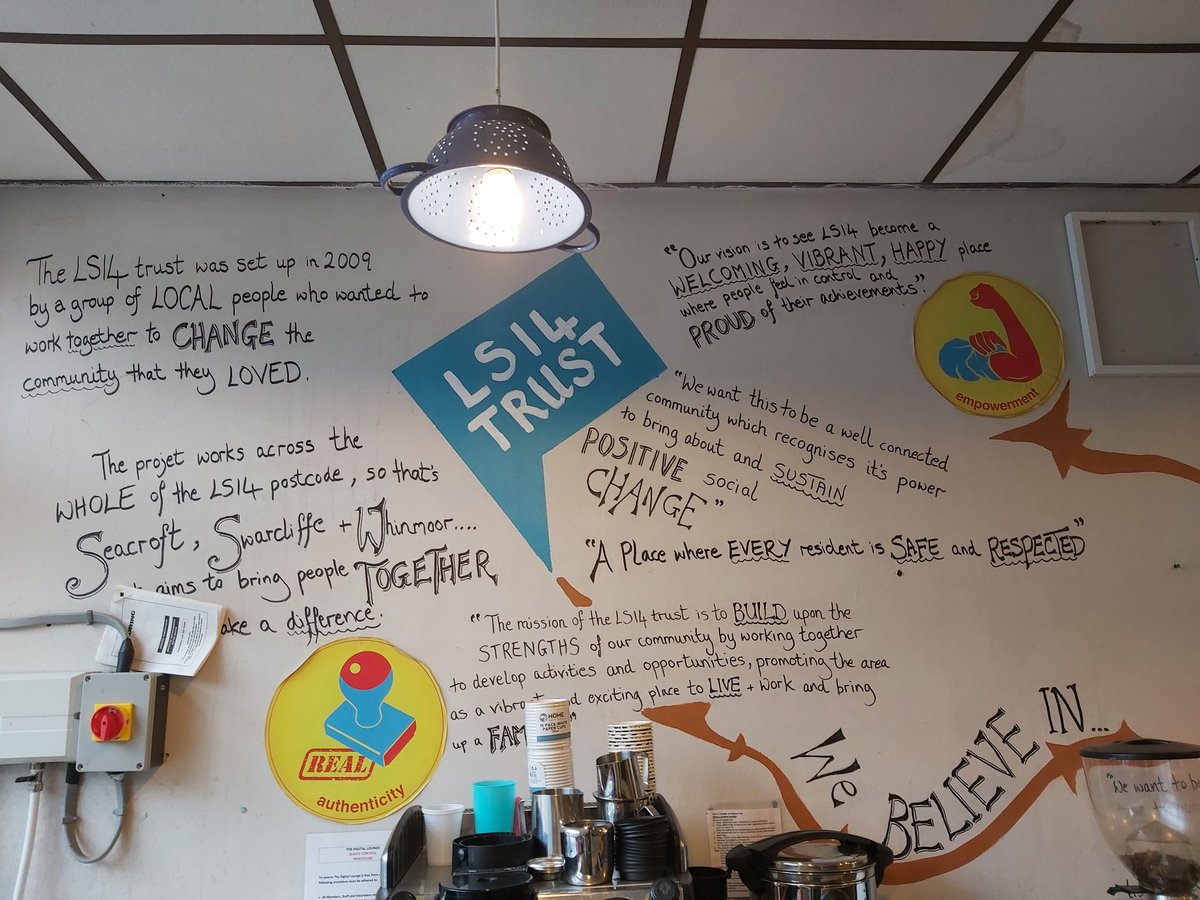 The LS14 trust was set up in 2009
by a group of LOCAL people who wanted to
work together to CHANGE the
community that they LOVED.
The projet works across the
WHOLE of the LS14 postcode, so that's
Seacroft, Swarcliffe + Whinmoor....
aims to bring people TOGETHER
a difference.
LS14
TRUST
"Our vision is to see LS14 become a
WELCOMING, VIBRANT, HAPPY place
where people feel in control and
PROUD of their achievements".
empowerment
"We want this to be a well connected
community which recognises it's power
to bring about and SUSTAIN
POSITIVE social
CHANGE"
"A Place where EVERY resident is SAFE and RESPECTED"
"The mission of the LS14 trust is to BUILD upon the
STRENGTHS of our community by working together
to develop activities and opportunities, promoting the area
as a and exciting place to LIVE + work and bring
up a
REAL
authenticity
We BELIEVE IN...
HOME
PAPER CUPS
THE DIGITAL LOUNGE
WASTE CONTROL
PROCEDURE
"We want to